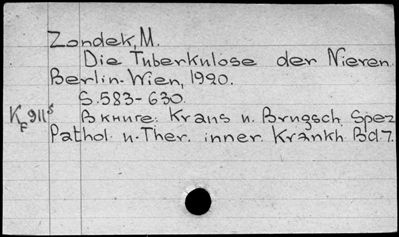 Zondek, M.
Die Tuberkulose der Nieren.
Berlin-Wien, 1920.
S. 583-630.
K 911 s
F
В книге: Kraus u. Brugsch Spez
Pathol. u. Ther. inner. Krankh Bd. 7.